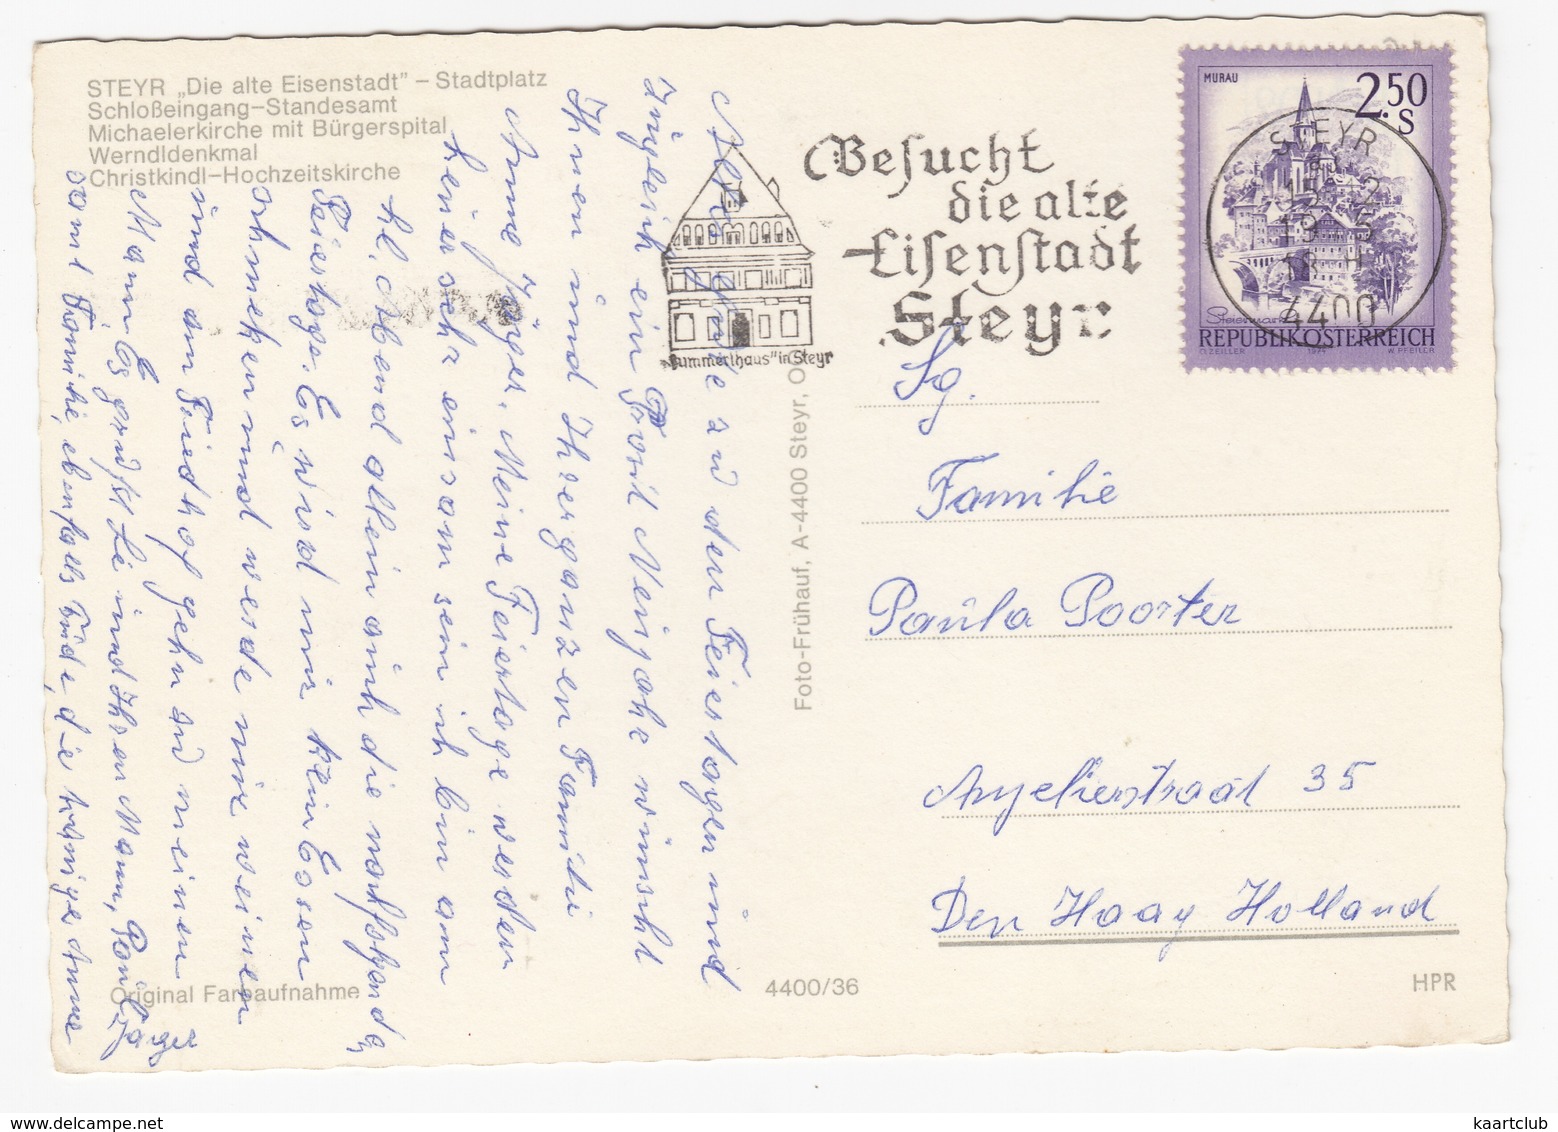 STEYR „Die alte Eisenstadt” – Stadtplatz
Schloßeingang–Standesamt
Michaelerkirche mit Bürgerspital
Werndldenkmal
Christkindl–Hochzeitskirche
Besucht
die alte
Eisenstadt
Steyr
"Bummerlhaus" in Steyr
MURAU
2.50
S
STEYR
4400
Steiermark
REPUBLIK ÖSTERREICH
O. ZEILER 1974 W. PFEILER
Alles Gute zu den Feiertagen und
zugleich ein Prosit Neujahr wünscht
Ihnen und Ihrer ganzen Familie
Anne Jäger. Meine Feiertage werden
heuer sehr einsam sein ich bin am
hl. Abend allein auch die
Feiertage. Es wird mir kein Essen
schmecken und werde nur weinen
und am Friedhof gehn zu meinen
Mann. Es grüßt Sie und Ihren Mann,
samt Familie, ebenfalls die Anne
Jäger
Foto-Frühauf, A-4400 Steyr, O
Sg.
Familie
Paula Poorter
Anjelierstraat 35
Den Haag Holland
Original Farbaufnahme
4400/36
HPR
kaartclub